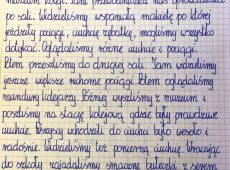 muzeum kolei. Pani przewodniczka nas oprowadzała
po sali. Widzieliśmy wspaniałą makietę po której
jeździły pociągi, ciuchcie, rębatkę, mogliśmy wszystko
dotykać. Oglądaliśmy różne ciuchcie i pociągi.
Potem przeszliśmy do drugiej sali. Tam widzieliśmy
jeszcze większe ruchome pociągi. Potem oglądaliśmy
mundury kolejarzy. Później wyszliśmy z muzeum i
poszliśmy na stację kolejową gdzie były prawdziwe
ciuchcie. Wszyscy wchodzili do środka było wesoło i
radośnie. Widzieliśmy też pancerną ciuchcię. Wracając
do szkoły zajadaliśmy smaczne bułeczki z serem